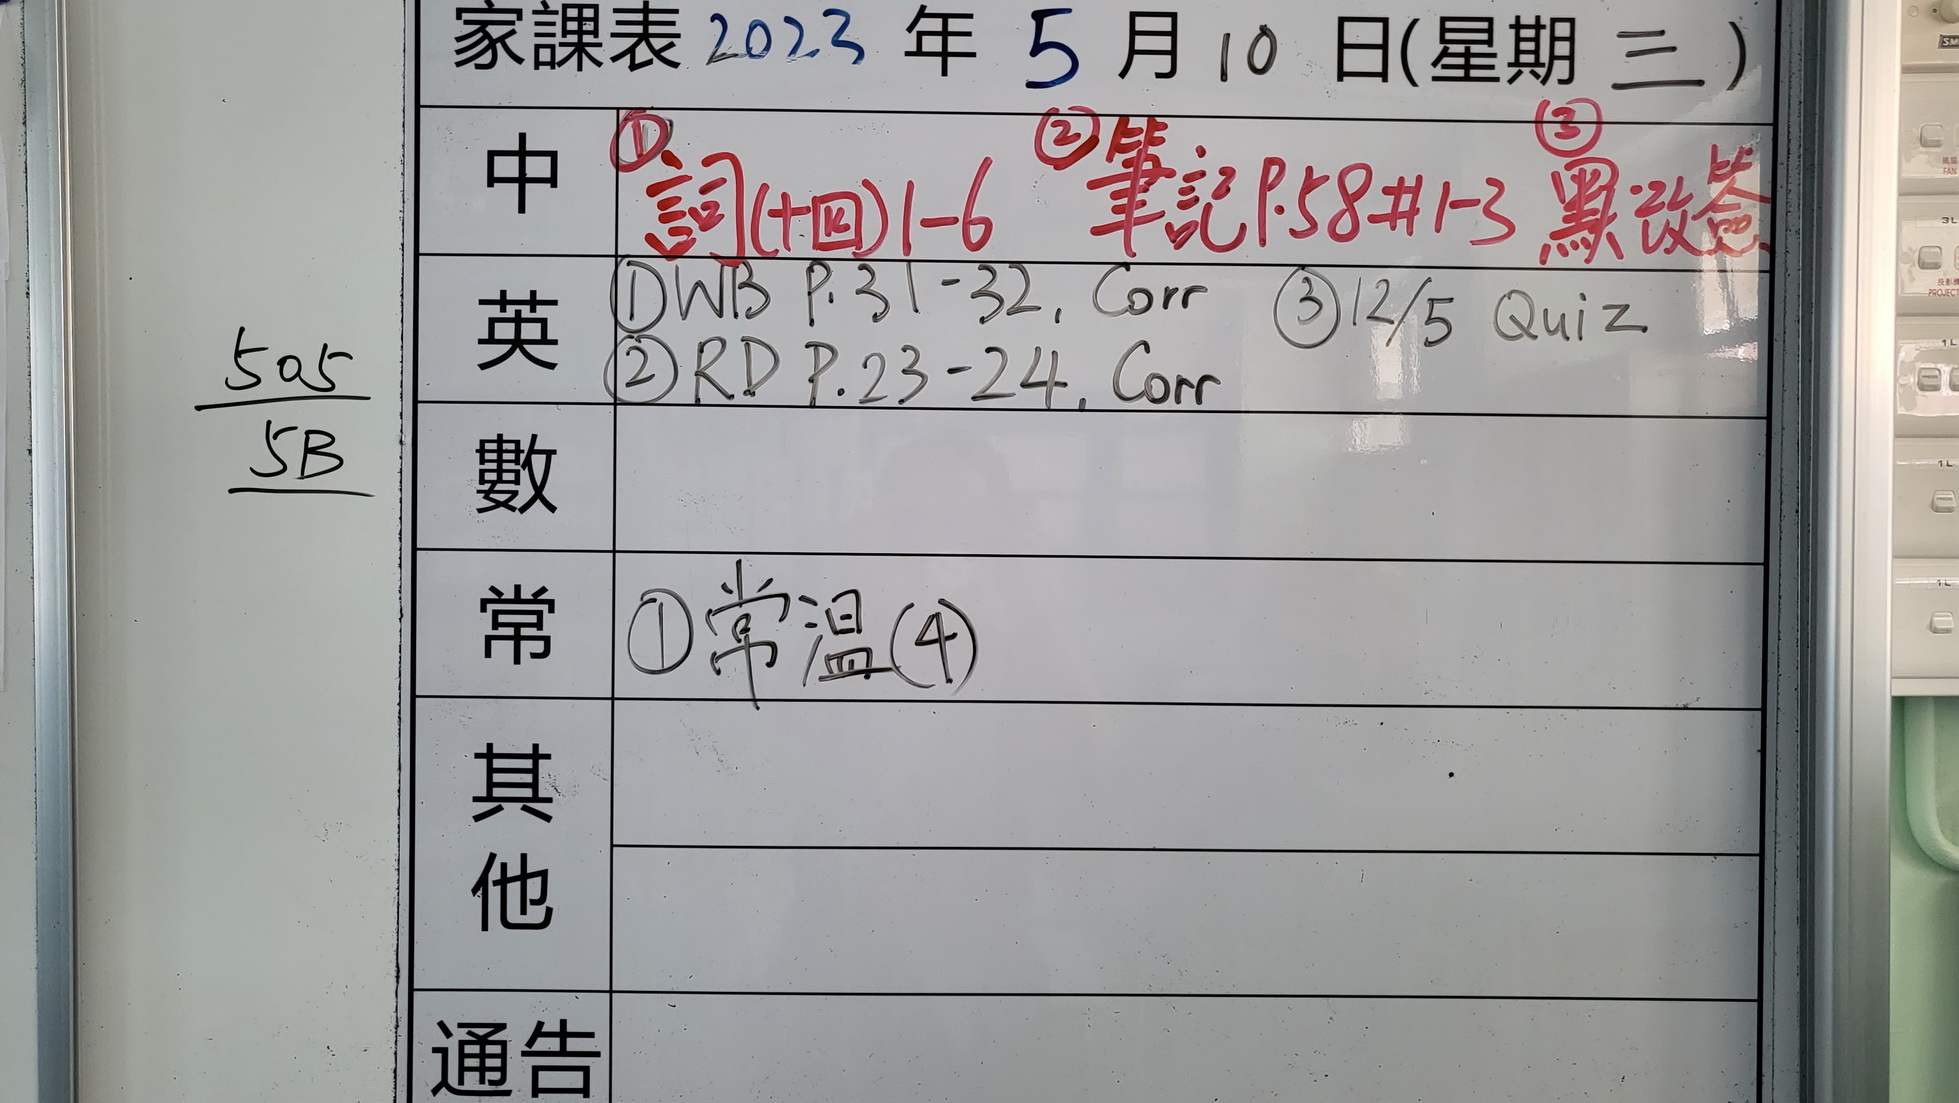 家課表 2023 年 5 月 10 日(星期 三)
中
① 詞(十四)1-6 ② 筆記P.58#1-3 ③ 默改簽
英
① WB P.31-32, Corr ③ 12/5 Quiz
② RD P.23-24, Corr
數
常
① 常温(4)
其他
通告
505
5B